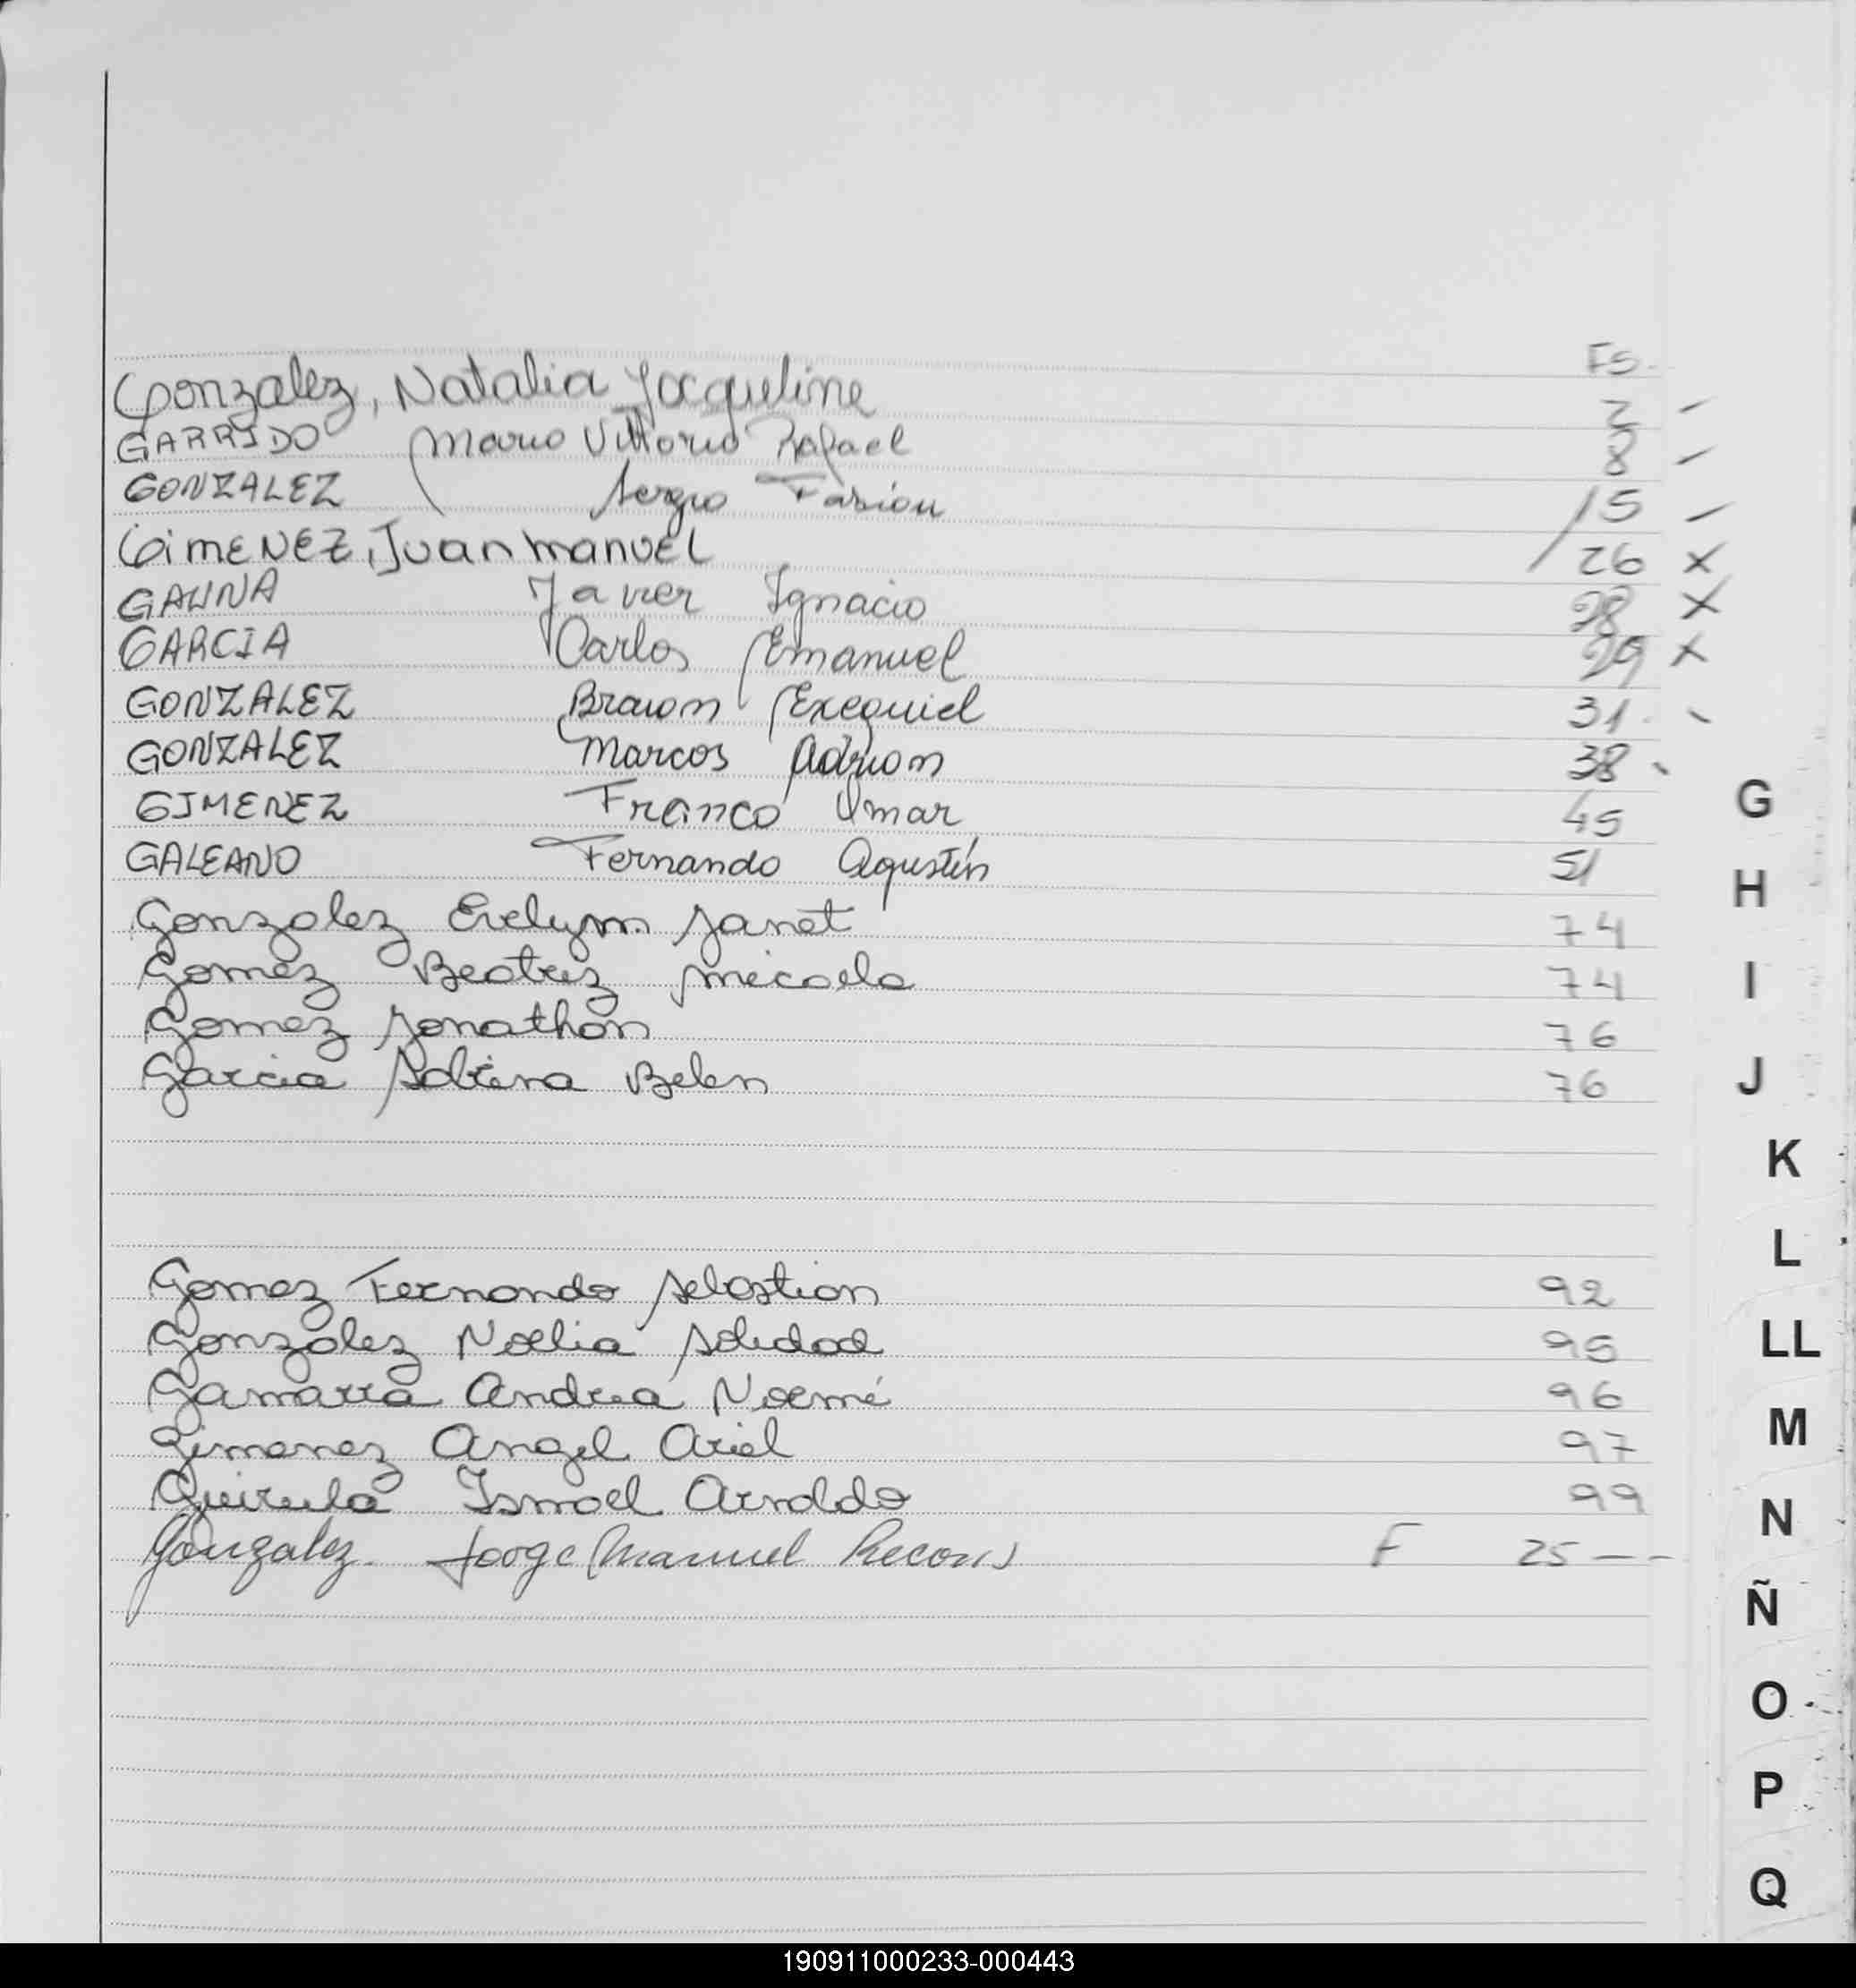 FS.
Gonzalez, Natalia Jacqueline 2 -
GARRIDO Mario Vittorio Rafael 8 -
GONZALEZ Sergio Fabián 15 -
GIMENEZ, Juan manuel 26 x
GAUNA Javier Ignacio 28 x
GARCIA Carlos Emanuel 29 x
GONZALEZ Braian Exequiel 31
GONZALEZ Marcos Adrian 38
GIMENEZ Franco Omar 45
GALEANO Fernando Agustín 51
Gonzalez Evelym Janet 74
Gomez Beatriz Micaela 74
Gomez Jonathan 76
Garcia Sabrina Belen 76
Gomez Fernando Sebastian 92
Gonzalez Noelia Soledad 95
Gamarra Andrea Noemi 96
Gimenez Angel Ariel 97
Ismael Arnaldo 99
Gonzalez Jorge Manuel F 25 --
G
H
I
J
K
L
LL
M
N
Ñ
O
P
Q
190911000233-000443